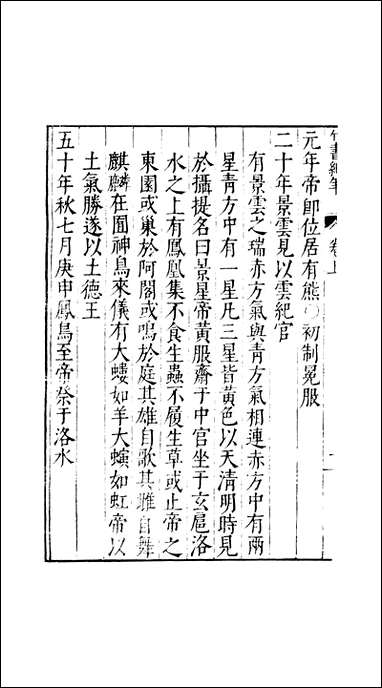 竹書紀年 卷上
元年帝卽位居有熊○初制冕服
二十年景雲見以雲紀官
有景雲之瑞赤方氣與青方氣相連赤方中有兩
星青方中有一星凡三星皆黃色以天清明時見
於攝提名曰景星帝黃服齋于中宮坐于玄扈洛
水之上有鳳凰集不食生蟲不履生草或止帝之
東園或巢於阿閣或鳴於庭其雄自歌其雌自舞
麒麟在囿神鳥來儀有大螻如羊大螾如虹帝以
土氣勝遂以土德王
五十年秋七月庚申鳳鳥至帝祭于洛水